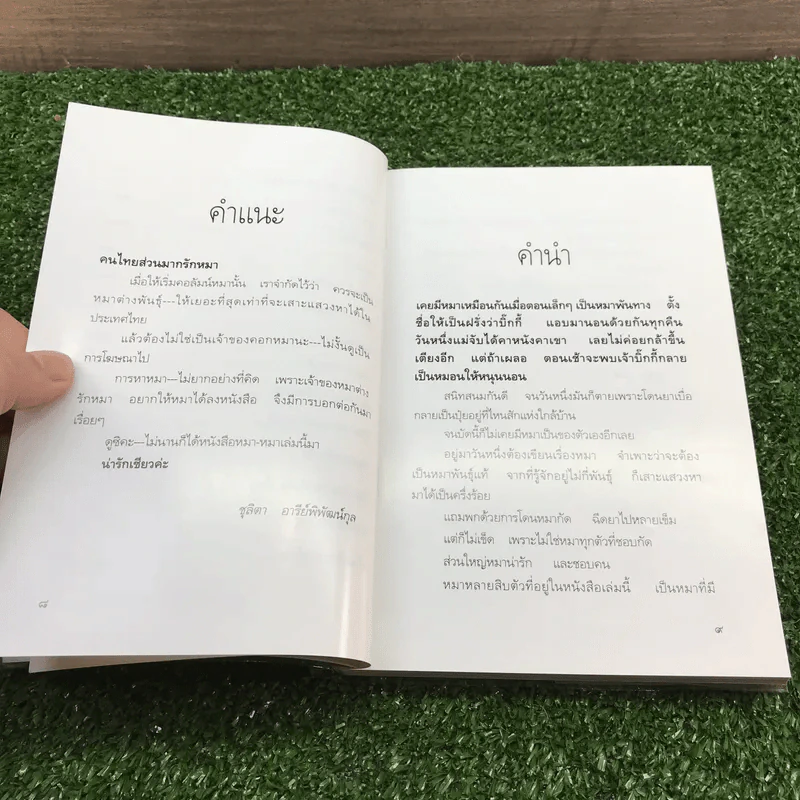 คำแนะ
คนไทยส่วนมากรักหมา
เมื่อให้เริ่มคอลัมน์หมานั้น เราจำกัดไว้ว่า ควรจะเป็น
หมาต่างพันธุ์---ให้เยอะที่สุดเท่าที่จะเสาะแสวงหาได้ใน
ประเทศไทย
แล้วต้องไม่ใช่เป็นเจ้าของคอกหมานะ---ไม่งั้นดูเป็น
การโฆษณาไป
การหาหมา—ไม่ยากอย่างที่คิด เพราะเจ้าของหมาต่าง
รักหมา อยากให้หมาได้ลงหนังสือ จึงมีการบอกต่อกันมา
เรื่อยๆ
ดูซิคะ—ไม่นานก็ได้หนังสือหมา-หมาเล่มนี้มา
น่ารักเชียวค่ะ
ชุลิตา อารีย์พิพัฒน์กุล
๘
คำนำ
เคยมีหมาเหมือนกันเมื่อตอนเล็กๆ เป็นหมาพันทาง ตั้ง
ชื่อให้เป็นฝรั่งว่าบิ๊กกี้ แอบมานอนด้วยกันทุกคืน
วันหนึ่งแม่จับได้คาหนังคาเขา เลยไม่ค่อยกล้าขึ้น
เตียงอีก แต่ถ้าเผลอ ตอนเช้าจะพบเจ้าบิ๊กกี้กลาย
เป็นหมอนให้หนุนนอน
สนิทสนมกันดี จนวันหนึ่งมันก็ตายเพราะโดนยาเบื่อ
กลายเป็นปุ๋ยอยู่ที่ไหนสักแห่งใกล้บ้าน
จนบัดนี้ก็ไม่เคยมีหมาเป็นของตัวเองอีกเลย
อยู่มาวันหนึ่งต้องเขียนเรื่องหมา จำเพาะว่าจะต้อง
เป็นหมาพันธุ์แท้ จากที่รู้จักอยู่ไม่กี่พันธุ์ ก็เสาะแสวงหา
มาได้เป็นครึ่งร้อย
แถมพกด้วยการโดนหมากัด ฉีดยาไปหลายเข็ม
แต่ก็ไม่เข็ด เพราะไม่ใช่หมาทุกตัวที่ชอบกัด
ส่วนใหญ่หมาน่ารัก และชอบคน
หมาหลายสิบตัวที่อยู่ในหนังสือเล่มนี้ เป็นหมาที่มี
๙